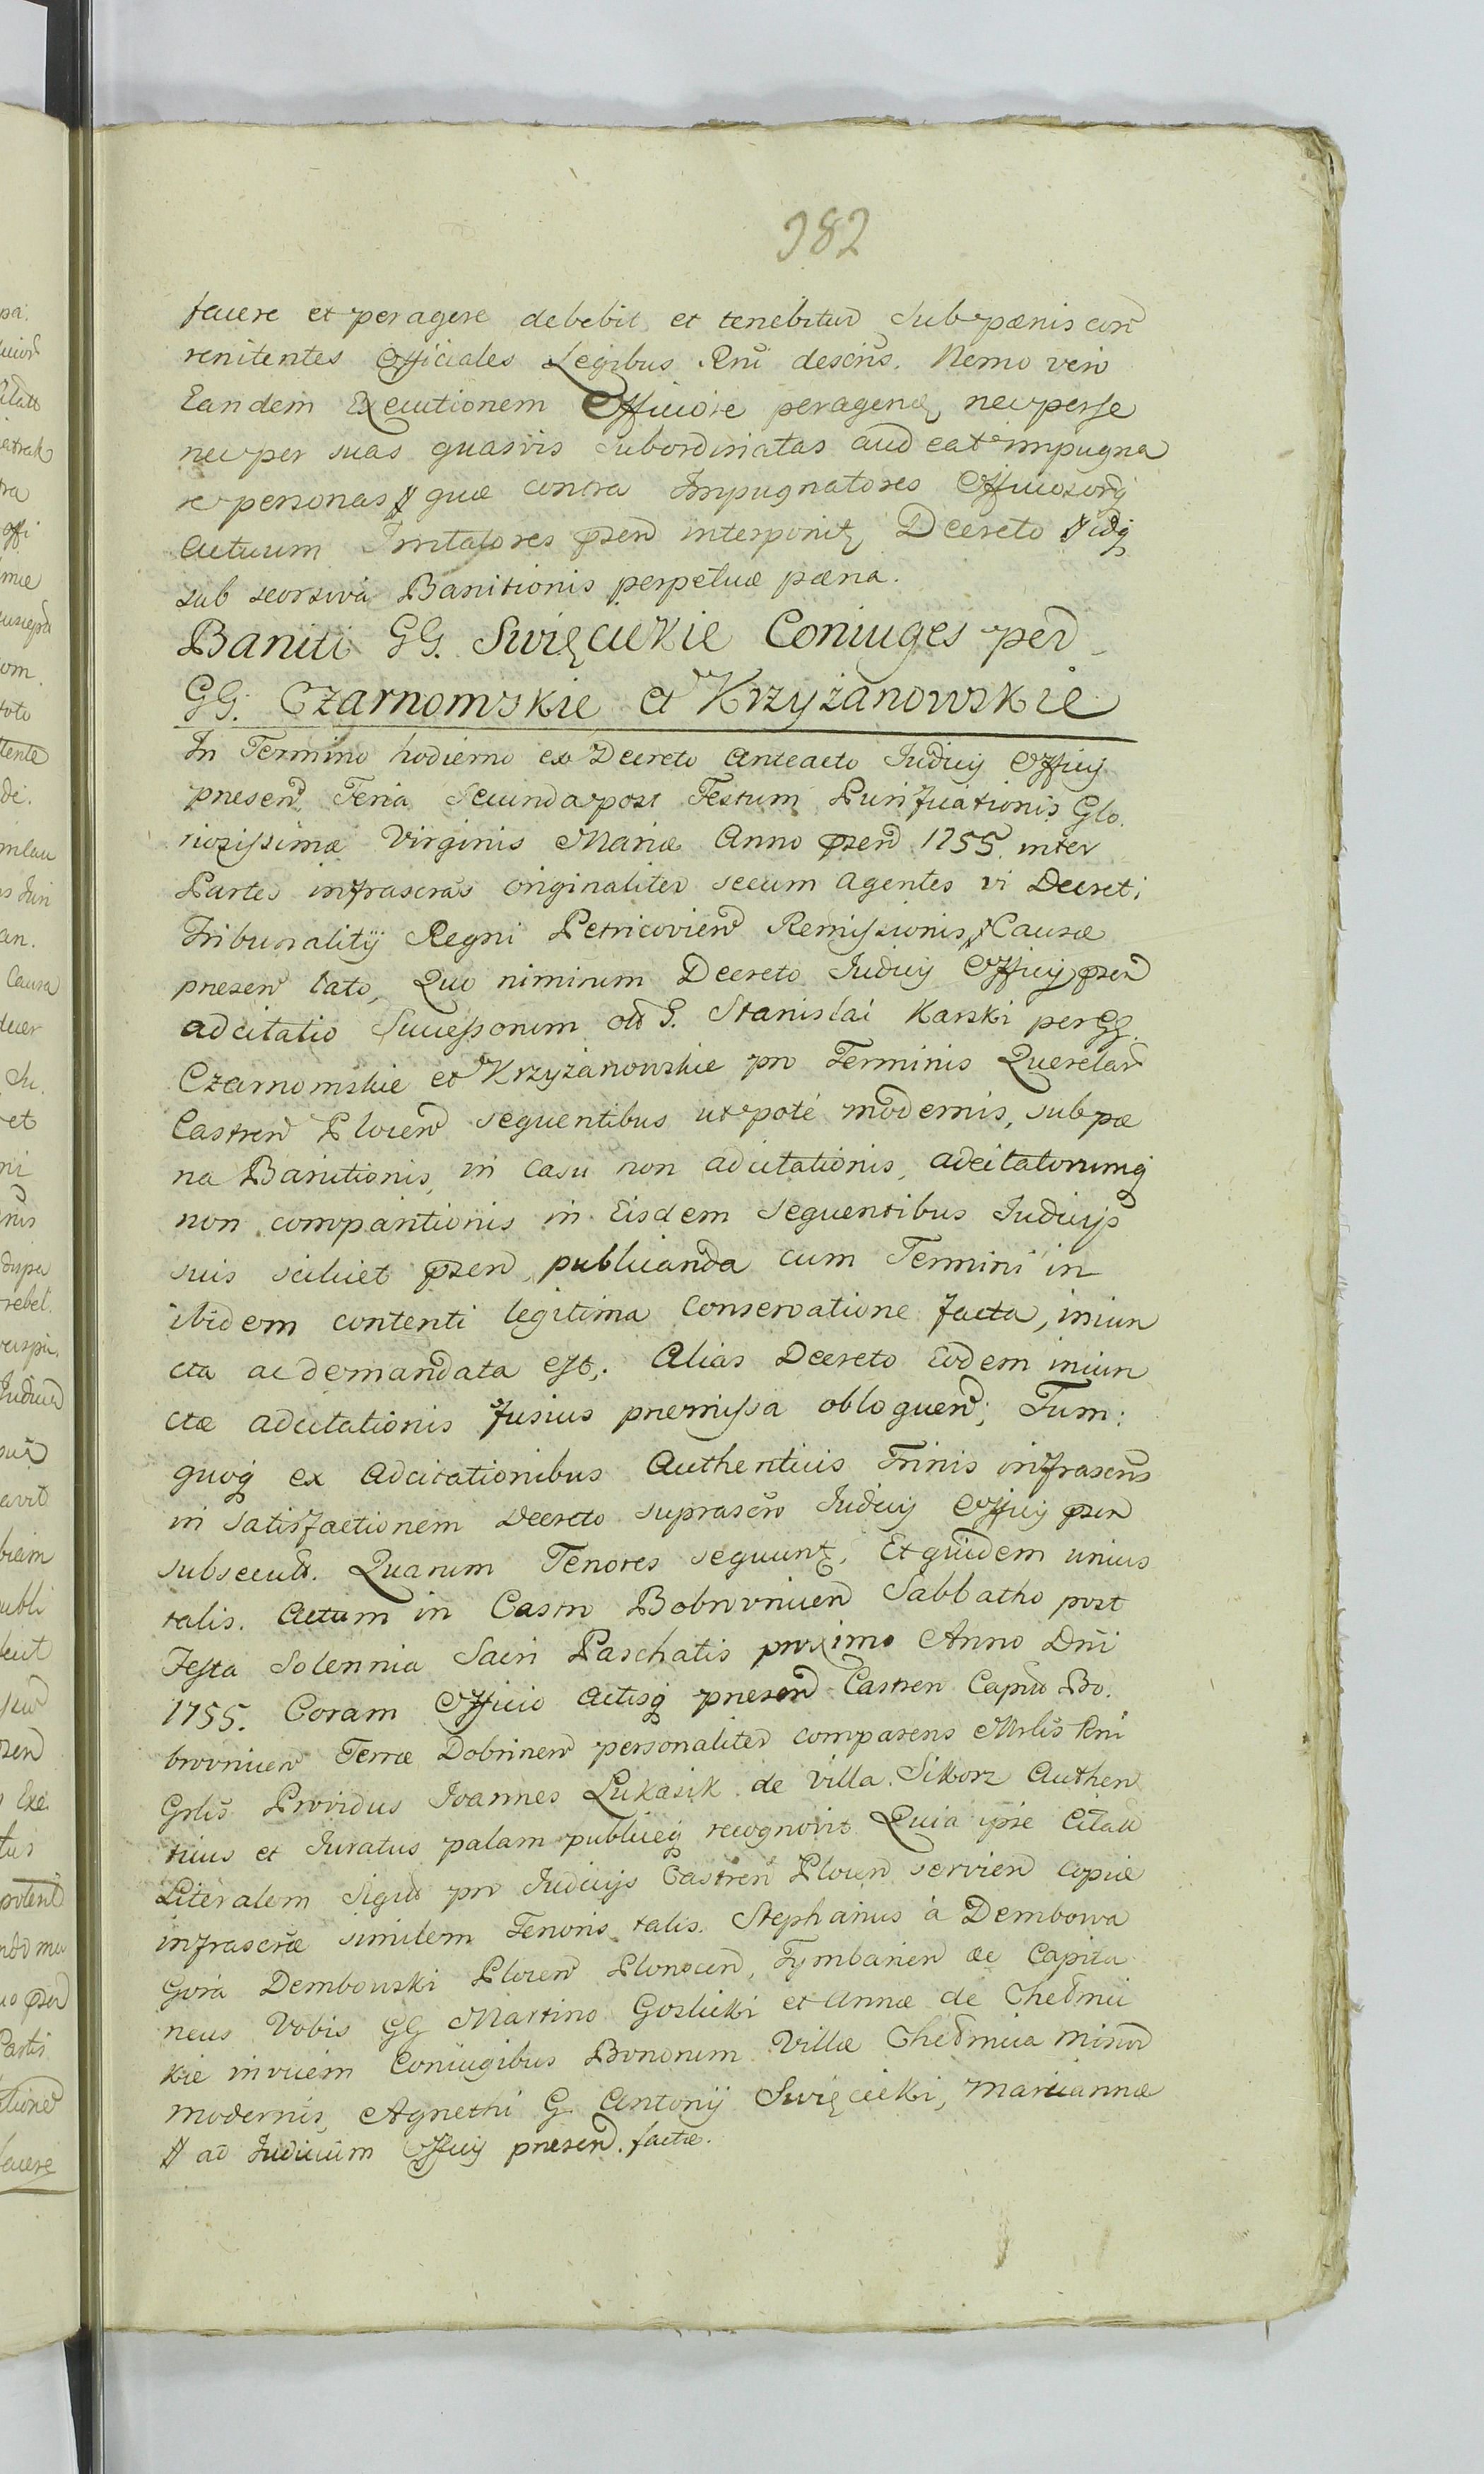 982
facere et peragere debebit et tenebitur sub pænis con
renitentes Officiales Legibus Rni descris. Nemo vero
Eandem Executionem Officiose peragend nec per se
nec per suas quasvis subordinatas audeat impugna
re personas # quæ contra Impugnatores Officiosorq
actuum Irritatores pzen interponit Decreto # idq
sub seorsiva Banitionis perpetuæ pæna.
Baniti GG. Swięcickie Coniuges per
GG. Czarnomskie et Krzyżanowskie
In Termino hodierno ex Decreto anteacto Iudicij Officij
presen Feria Secunda post Festum Purificationis Glo
riozissimæ Virginis Mariæ Anno pzen 1755. inter
Partes infrascras originaliter secum agentes vi Decreti
Tribunalitij Regni Petricovien Remissionis # Causæ
presen lato, Quo nimirum Decreto Iudicij Officij pzen
adcitatio Successorum olt G. Stanislai Karski per GG.
Czarnomskie et Krzyżanowskie pro Terminis Querelar
Castren Plocen sequentibus utpote modernis, sub pæ
na Banitionis, in casu non adcitationis, adcitatorumq
non comparitionis in Eisdem sequentibus Iudicijs
suis scilicet pzen, publicanda cum Termini in
ibidem contenti legitima conservatione facta, iniun
cta ac demandata est,. Alias Decreto Eodem iniun
ctæ adcitationis fusius premissa obloquen; Tum:
quoq ex Adcitationibus Authenticis Trinis infrascris
in satisfactionem Decreto suprascro Iudicij Officij pzen
subsecut. Quarum Tenores sequunt. Et quidem unius
talis. Actum in Castro Bobrownicen Sabbatho post
Festa Solennia Sacri Paschatis proximo Anno Dni
1755. Coram Officio Actisq presen Castren Capit Bo.
brownicen Terræ Dobrinen personaliter comparens Mrlis Rni
Grlis Providus Ioannes Lukasik de Villa Sikorz Authen
ticus et Iuratus palam publiceq recognovit Quia ipse Citaõ
Literalem Sigil pro Iudicijs Castren Plocen servien copiæ
infrascræ similem Tenoris talis. Stephanus à Dembowa
Gora Dembowski Plocen Plonscen, Tymbarien &c Capita
neus Vobis GG Martino Goslicki et Annæ de Chełmi
kie invicem Coniugibus Bonorum Villæ Chełmica minor
modernis, Agnethi G. Antonij Swięcicki, Mariannæ
# ad Iudicium Officij presen. factæ.